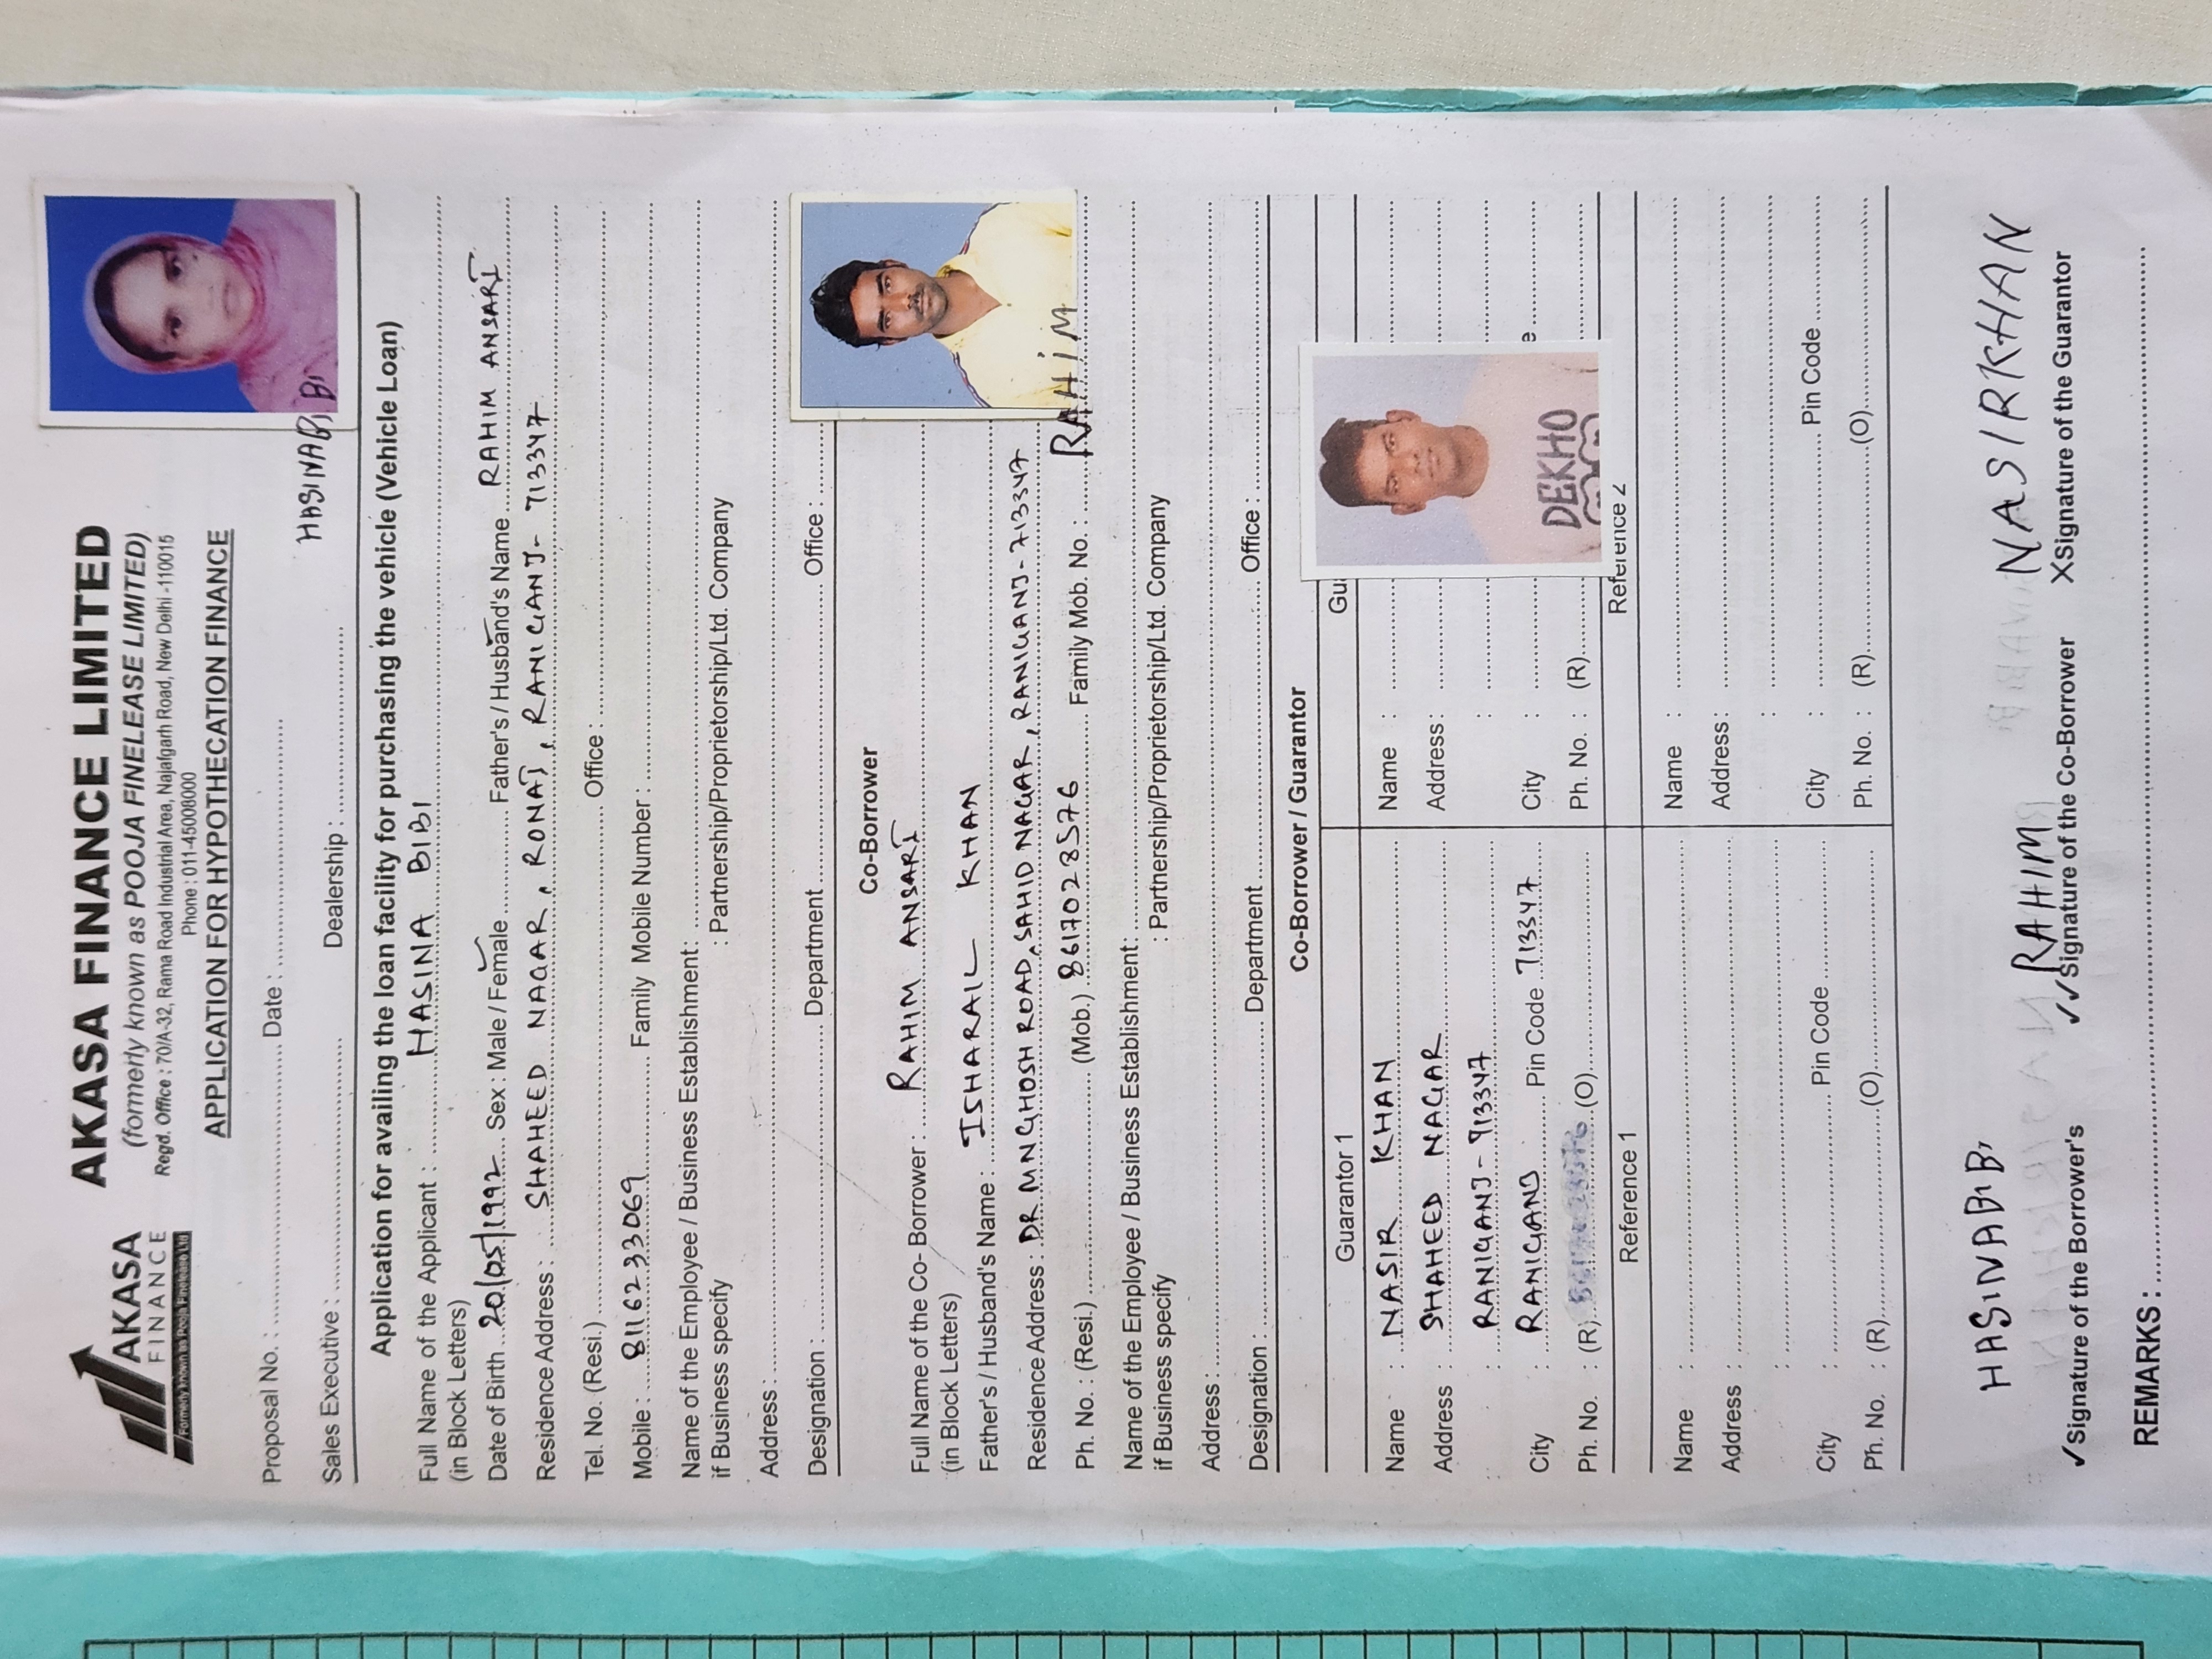 AKASA
FINANCE
Formerly known as Pooja Finelease Ltd
AKASA FINANCE LIMITED
(formerly known as POOJA FINELEASE LIMITED)
Regd. Office : 70/A-32, Rama Road Industrial Area, Najafgarh Road, New Delhi -110015
Phone : 011-45008000
APPLICATION FOR HYPOTHECATION FINANCE
Proposal No. : Date :
HASINABIBI
Sales Executive : Dealership :
Application for availing the loan facility for purchasing the vehicle (Vehicle Loan)
Full Name of the Applicant : HASINA BIBI
(in Block Letters)
Date of Birth 20/05/1992 Sex : Male / Female Father's / Husband's Name RAHIM ANSARI
Residence Address : SHAHEED NAGAR, RONAI, RANIGANJ- 713347
Tel. No. (Resi.) Office :
Mobile : 8116233069 Family Mobile Number :
Name of the Employee / Business Establishment:
if Business specify : Partnership/Proprietorship/Ltd. Company
Address :
Designation : Department Office :
Co-Borrower
Full Name of the Co- Borrower : RAHIM ANSARI
(in Block Letters)
Father's / Husband's Name : ISHARAIL KHAN
Residence Address : DR MN GHOSH ROAD, SAHID NAGAR, RANIGANJ-713347
Ph. No. : (Resi.) (Mob.) 8617028576 Family Mob. No. : RAHIM
Name of the Employee / Business Establishment:
if Business specify : Partnership/Proprietorship/Ltd. Company
Address :
Designation : Department Office :
Co-Borrower / Guarantor
Guarantor 1
Name : NASIR KHAN Name :
Address : SHAHEED NAGAR Address :
: RANIGANJ- 713347 :
City : RANIGANJ Pin Code 713347 City :
Ph. No. : (R) (O) Ph. No. : (R)
DEKHO
Reference 1 Reference 2
Name : Name :
Address : Address :
: :
City : Pin Code City : Pin Code
Ph. No. : (R) (O) Ph. No. : (R) (O)
HASINABIBI RAHIM NASIRKHAN
✓Signature of the Borrower's ✓✓Signature of the Co-Borrower XSignature of the Guarantor
REMARKS :